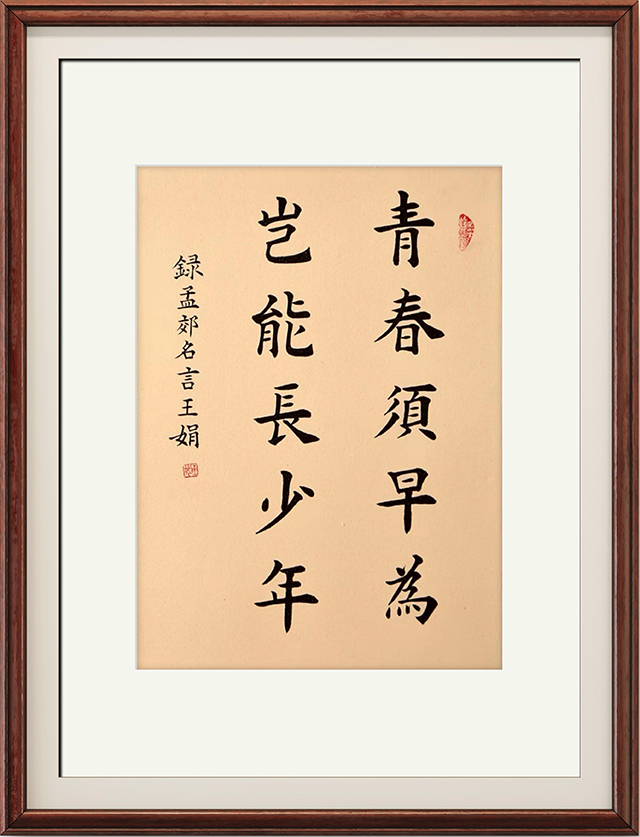 青春須早為
岂能長少年
録孟郊名言王娟